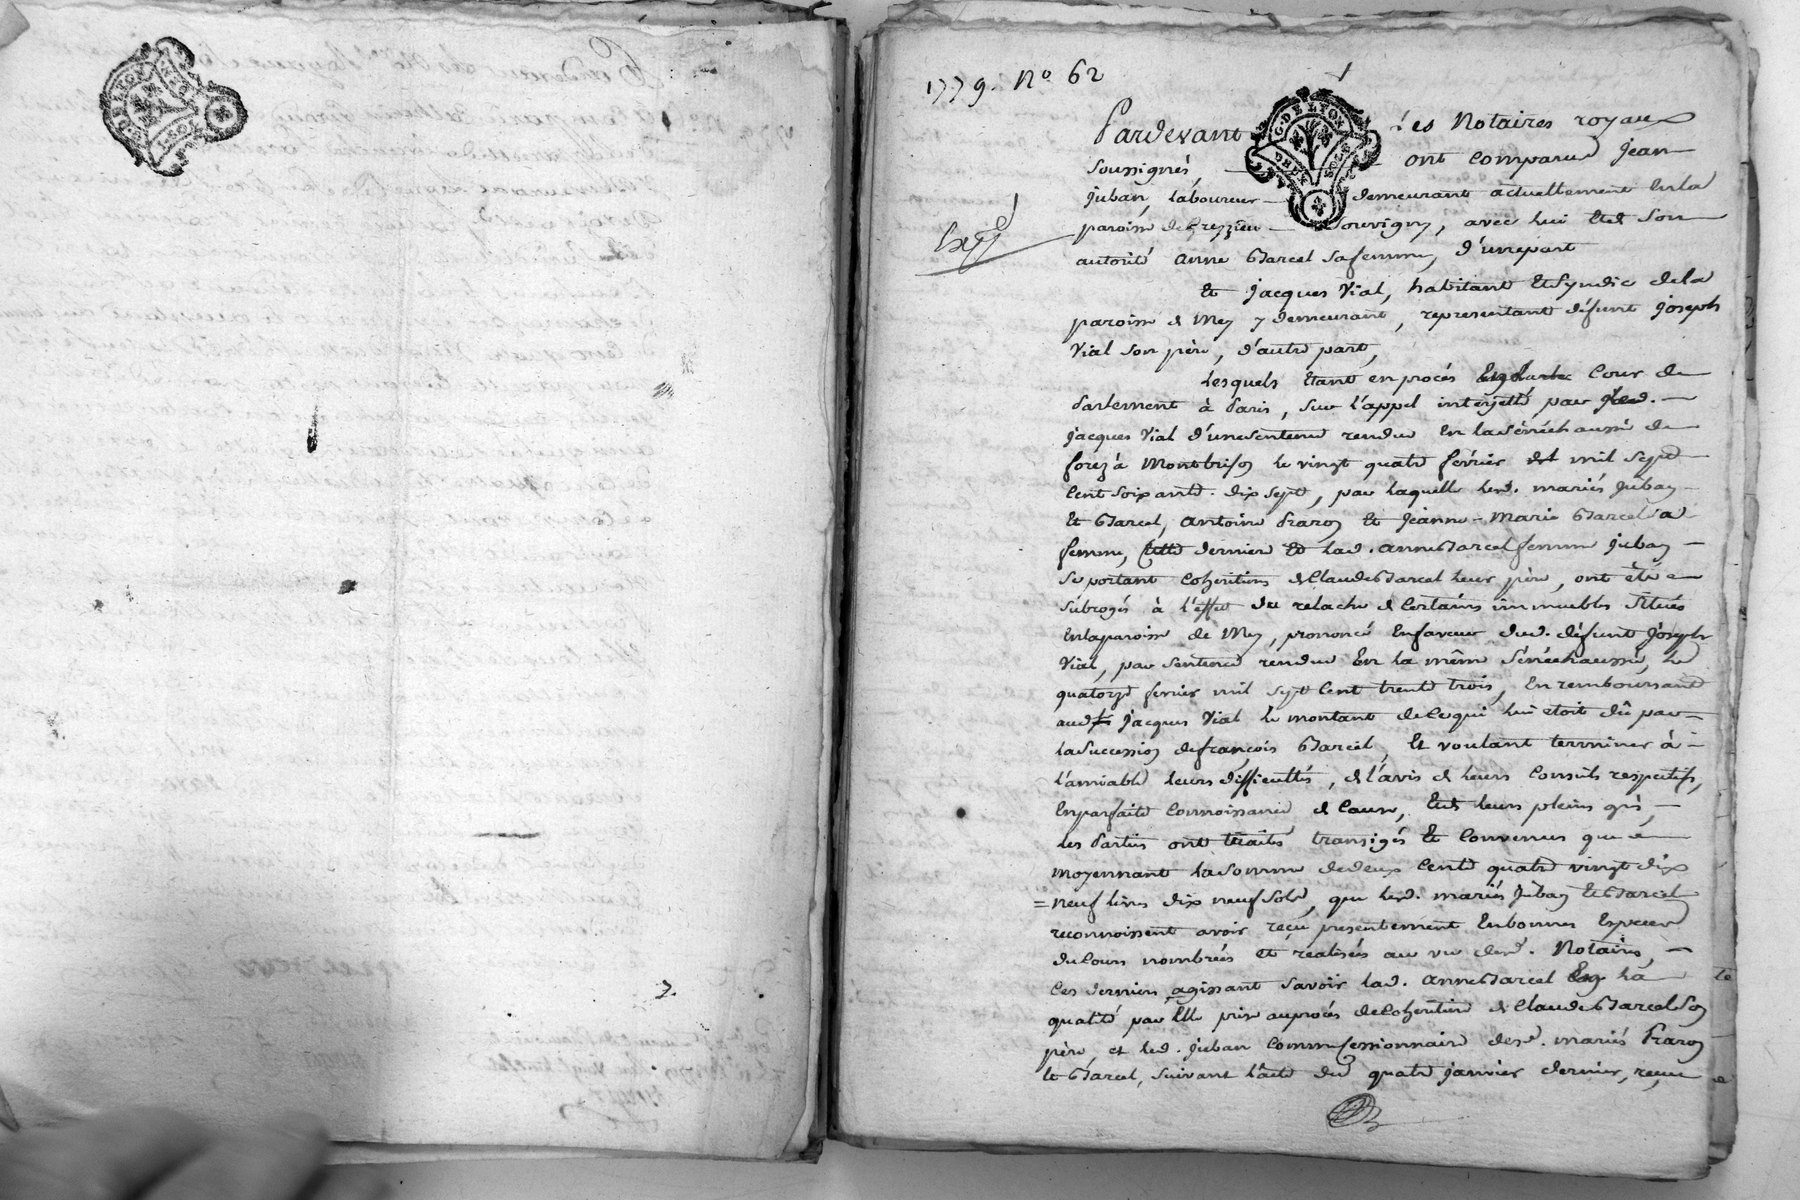 1779. No 62
Pardevant Les Notaires royaux
Soussignés, ont comparu Jean
Juban, laboureur demeurant actuellement En la
paroisse de Grezzieu Souvigny, avec lui Et de Son
autorité anne Barcel Sa femme, d'unepart
Expé
Et Jacques Vial, habitant Et Syndic de la
paroisse de Mey y demeurant, representant défunt Joseph
Vial Son père, d'autre part,
Lesquels Etant en procés Cour de
Parlement à Paris, Sur l'appel interjetté par led.
Jacques Vial d'une Sentence rendue En la Sénéchaussé de
forez à Montbrison le vingt quatre février mil Sept
Cent Soixante dix Sept, par laquelle lesd. mariés Juban
Et Barcel, antoine Pearon Et Jeanne-Marie Barcel Sa
femme, Cette derniere Et lad. anne Barcel femme Juban
Se portant Coheritiers de Claude Barcel leur père, ont été
Subrogés à l'effet du relache de Certains immeubles Situés
En la paroisse de Mey, prononcé En faveur dud. défunt Joseph
Vial, par Sentence rendue En la même Sénéchaussé, le
quatorze fevrier mil Sept Cent trente trois, En remboursant
aud. Jacques Vial le montant de Ce qui lui etoit dû par
la Succession de françois Barcel, Et voulant terminer à
l'amiable leurs difficultés, de l'avis de leurs Conseils respectifs,
En parfaite Connoissance de Cause, Et de leurs pleins grés,
les Parties ont traités transigés Et Convenus que
moyennant la Somme de deux Cents quatre vingt dix
neuf livres dix neuf Sols, que lesd. mariés Juban Et Barcel
reconnoissent avoir reçu presentement En bonnes Especes
du Cours nombrées Et réalisés au vu desd. Notaires,
Ces derniers agissant Savoir lad. anne Barcel En la
qualité par Elle prise au procés de Coheritiere de Claude Barcel Son
père, et led. Juban Comme Cessionnaire desd. mariés Pearon
Et Barcel, Suivant l'acte du quatre Janvier dernier, reçu
G. DE LYON
DEUX SOLS